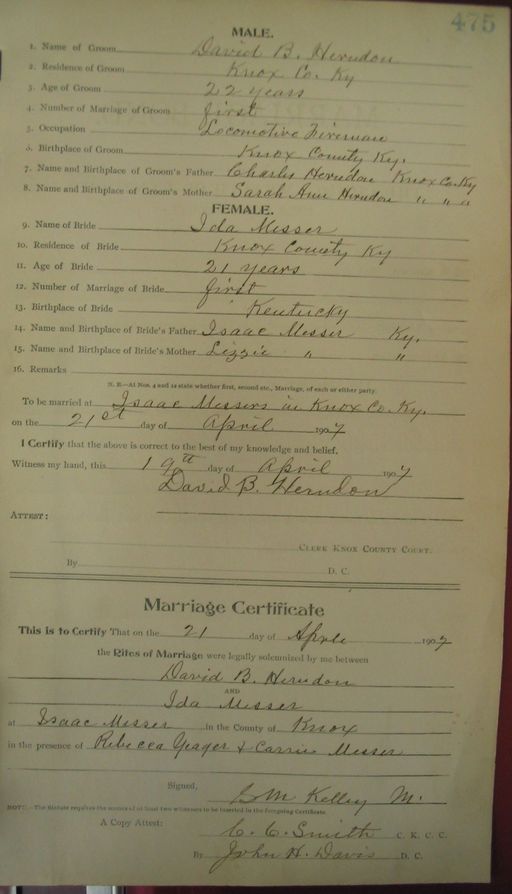 475
MALE.
1. Name of Groom David B. Herndon
2. Residence of Groom Knox Co. Ky
3. Age of Groom 22 years
4. Number of Marriage of Groom first
5. Occupation Locomotive Fireman
6. Birthplace of Groom Knox County Ky.
7. Name and Birthplace of Groom's Father Charly Herndon Knox Co. Ky
8. Name and Birthplace of Groom's Mother Sarah Ann Herndon " " "
FEMALE.
9. Name of Bride Ida Messer
10. Residence of Bride Knox County Ky
11. Age of Bride 21 years
12. Number of Marriage of Bride first
13. Birthplace of Bride Kentucky
14. Name and Birthplace of Bride's Father Isaac Messer Ky.
15. Name and Birthplace of Bride's Mother Lizzie " "
16. Remarks
N. B.—At Nos. 4 and 12 state whether first, second etc., Marriage, of each or either party.
To be married at Isaac Messers in Knox Co. Ky.
on the 21st day of April 1907
I Certify that the above is correct to the best of my knowledge and belief.
Witness my hand, this 19th day of April 1907
David B. Herndon
ATTEST:
CLERK KNOX COUNTY COURT.
By D. C.
Marriage Certificate
This is to Certify That on the 21 day of Aprile 1907
the Rites of Marriage were legally solemnized by me between
David B. Herndon
AND
Ida Messer
at Isaac Messer in the County of Knox
in the presence of Rebecca Yeager & Carrie Messer
Signed, Kelley M.
NOTE:—The Statute requires the names of at least two witnesses to be inserted in the foregoing Certificate
A Copy Attest: C. C. Smith C. K. C. C.
By John H. Davis D. C.